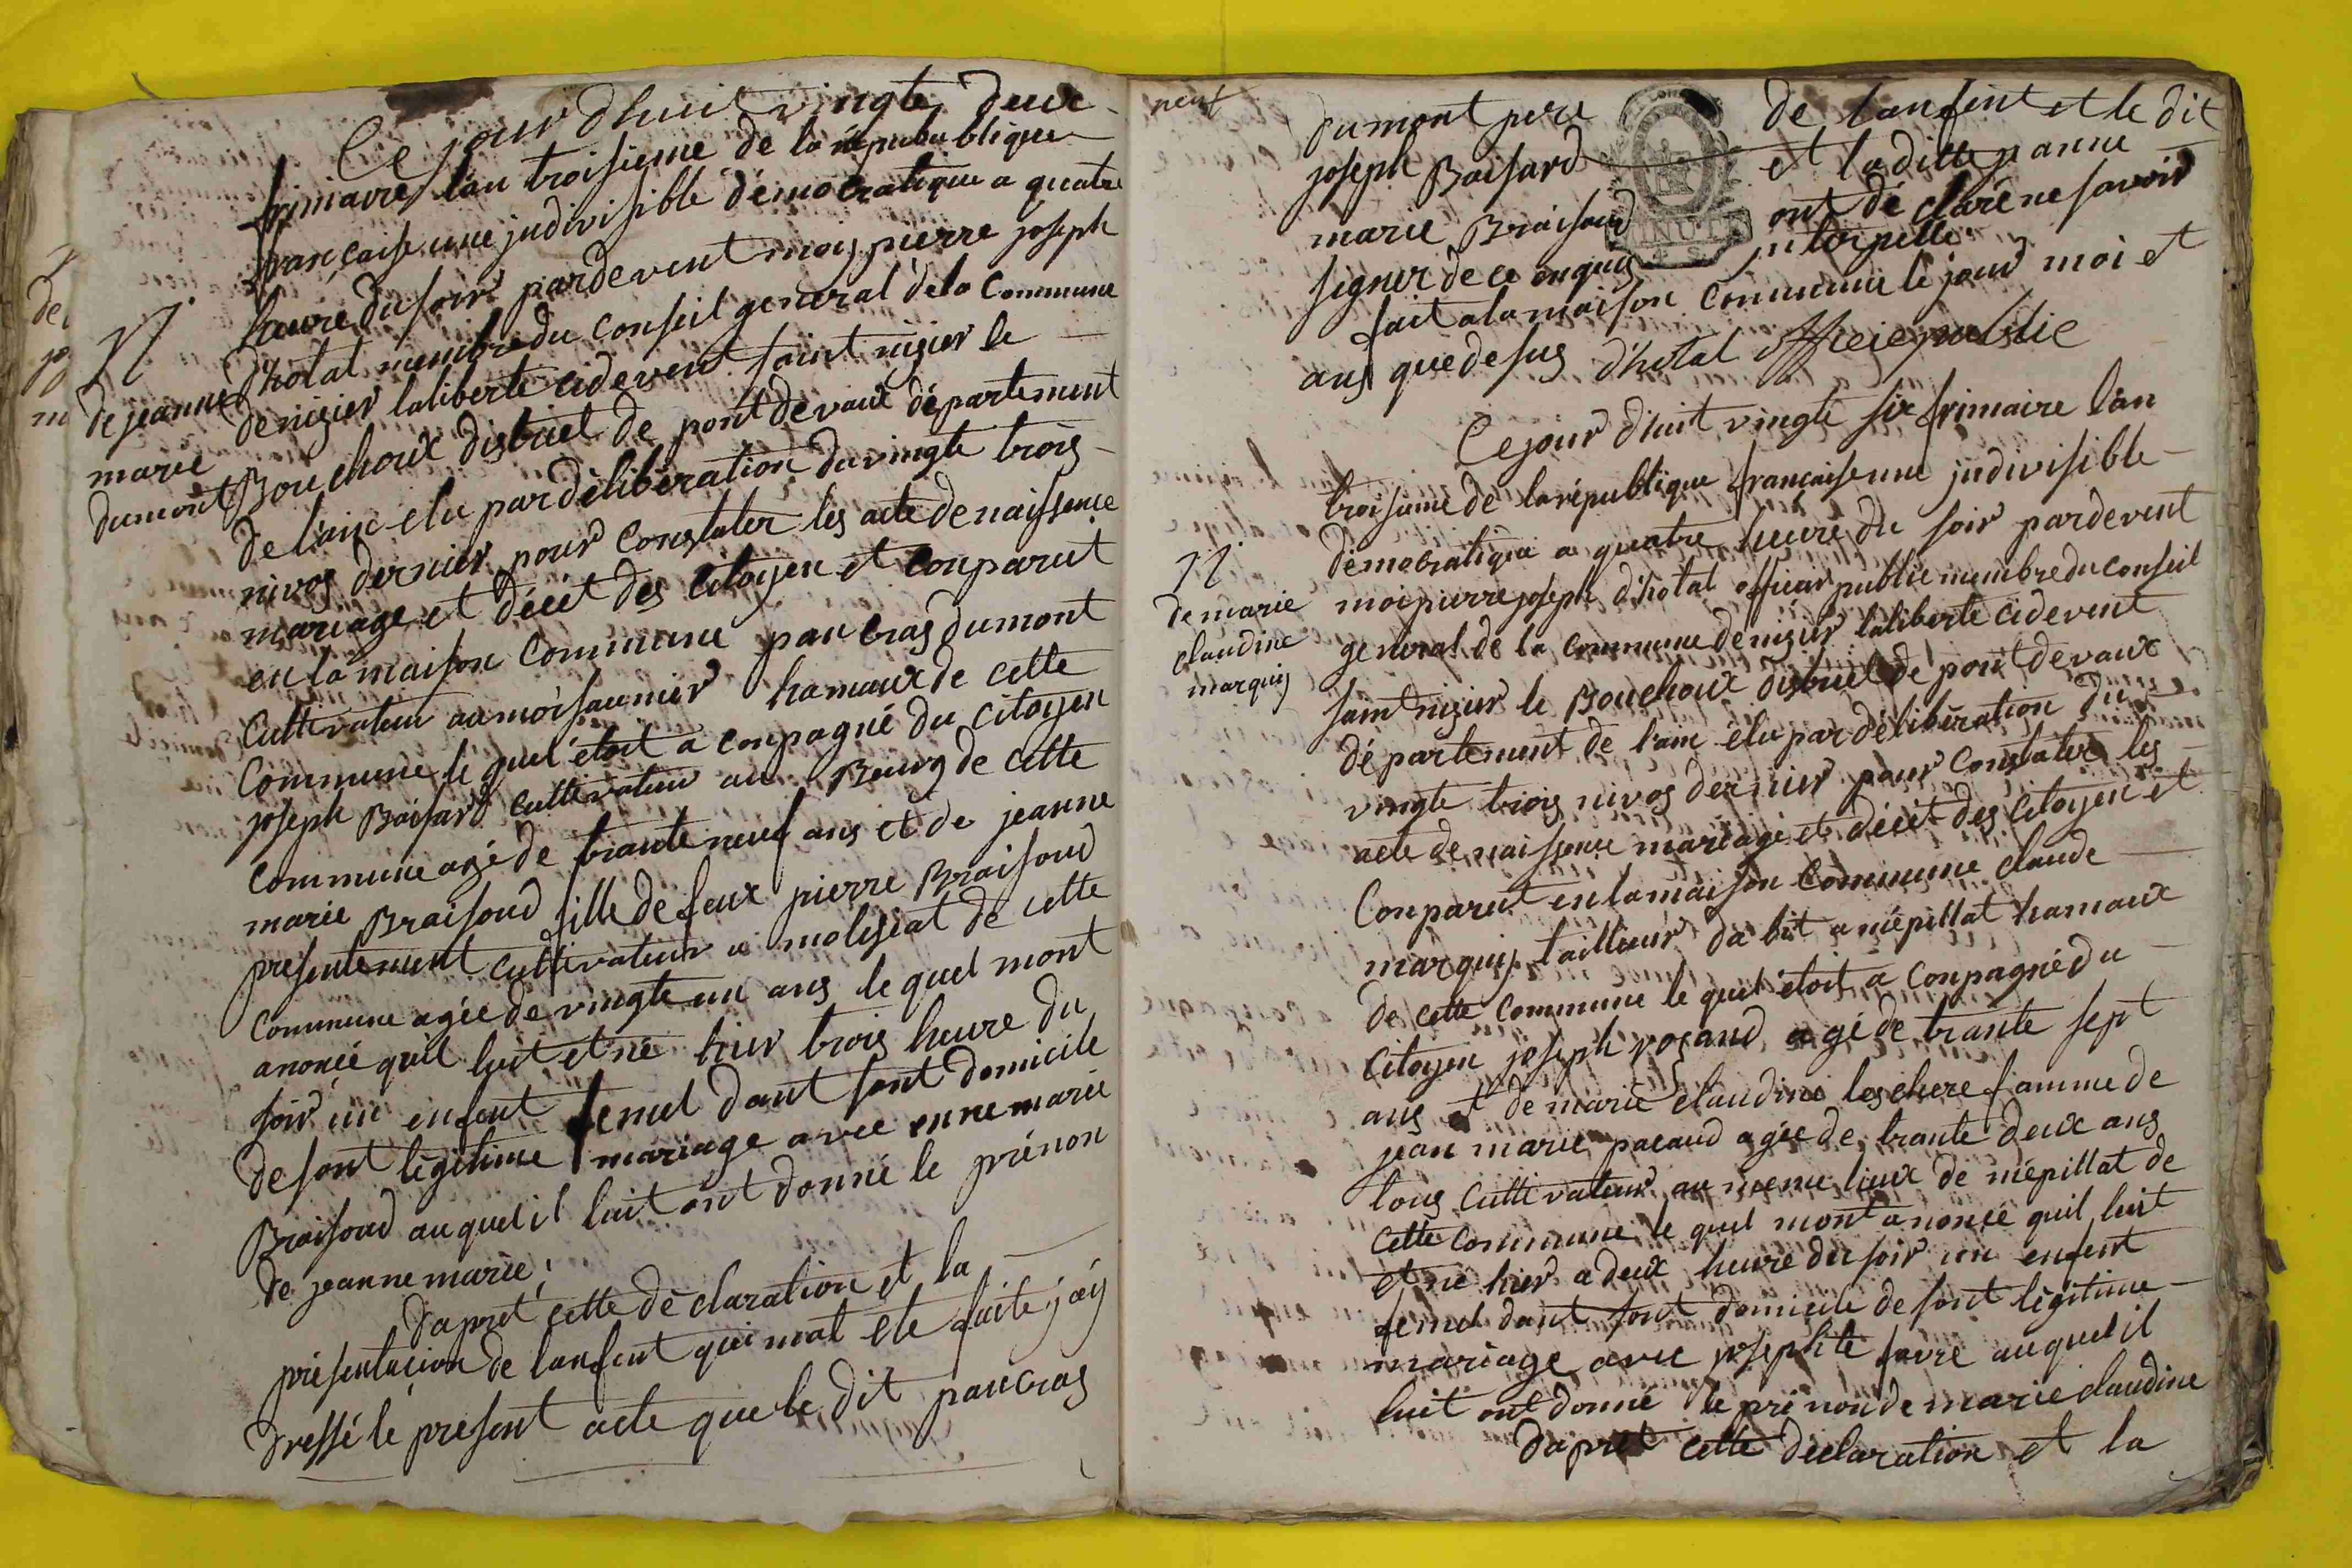 Ce jour dhuit vingte deux
frimaire lan troisieme de la républblique
francaise une judivisible démocratique a quatre
heure du soir pardevent moi pierre joseph
d'hotal membre du conseil general de la commune
de nizier laliberté cidevent saint nizier le
Bouchoux district de pont devaux département
de l'ain elu par délibération du vingte trois
nivos dernier pour constater les acte de naissence
mariage et décet des citoyen et conparut
en la maison commune pancras dumont
cultivateur au moisaunier hamaux de cette
commune le quel étoit a conpagné du citoyen
joseph Boisard cultivateur au Bourg de cette
commune agé de trante neuf ans et de jeanne
marie Braisoud fille de feux pierre Braisoud
presentement cultivateur a molisiat de cette
commune agée de vingte un ans le quel mont
anoncé quil luit et né hier trois heure du
soir un enfent femel dant sont domicile
de sont légitime mariage avec enne marie
Braisoud au quel il luit ont donné le prénon
de jeanne marie;
dapret cette déclaration et la
présentacion de lanfent qui mat ete faite j'ay
dressé le present acte que le dit pancras
N
de jeanne
marie
dumont
neuf
dumont pere de lanfent et le dit
joseph Boisard et la ditte jeanne
marie Braisoud ont dé claré ne savoir
signer de ce enquis jnterpellé
fait a la maison commune le jour moi et
ans que desus d'hotal officié public
MINUT
Ce jour d'huit vingte six frimaire l'an
troisieme de la république francaise une judivisible
démocratique a quatre heure du soir pardevent
moi pierre joseph d'hotal officier public membre du conseil
general de la commune de nizier laliberté cidevent
saint nizier le Bouchoux district de pont devaux
département de l'ain elu par délibération du
vingte trois nivos dernier pour constater les
acte de naissence mariage et décet des citoyen et
conparut en la maison commune claude
marquis tailleur da bit a miépillat hamaux
de cette commune le quel étoit a conpagné du
citoyen joseph rosand agé de trante sept
ans et de marie claudine leschere famme de
jean marie pacaud agée de trante deux ans
tous cultivateur au meme lieux de miépillat de
cette commune le quel mont anoncé quil luit
et né hier a deux heure du soir un enfent
femel dant sont domicile de sont légitime
mariage avec josephte favre au quel il
luit ont donné le prénon de marie claudine
dapret cette declaration et la
N
de marie
claudine
marquis